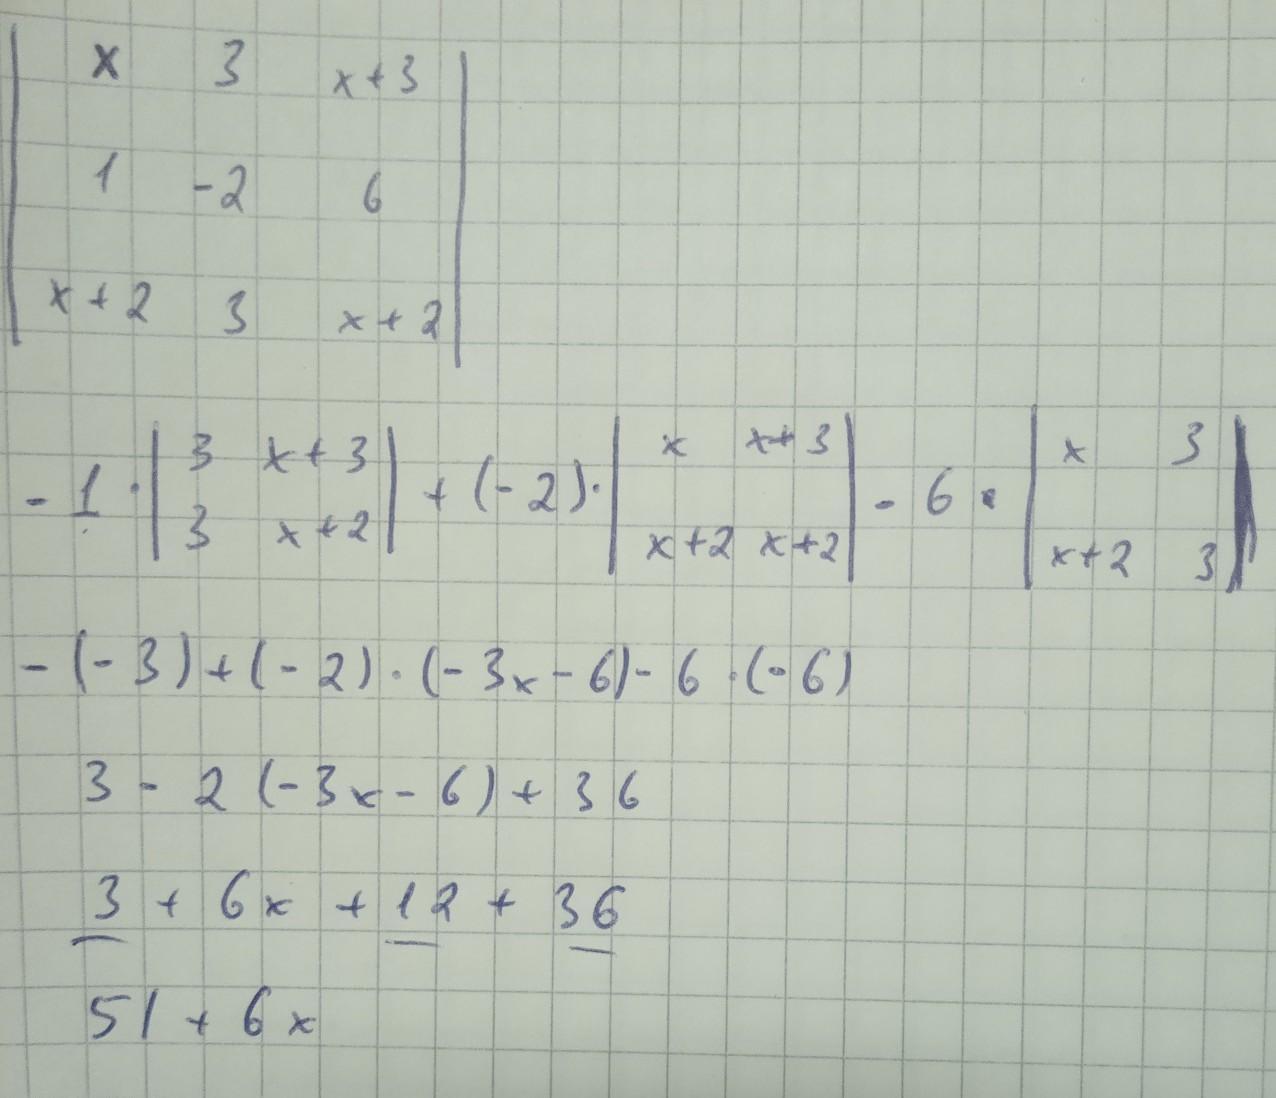 | x 3 x+3 |
| 1 -2 6 |
| x+2 3 x+2 |
- 1 · | 3 x+3 | + (-2) · | x x+3 | - 6 · | x 3 |
| 3 x+2 | | x+2 x+2 | | x+2 3 |
- (-3) + (-2) · (-3x - 6) - 6 · (-6)
3 - 2 (-3x - 6) + 36
3 + 6x + 12 + 36
51 + 6x